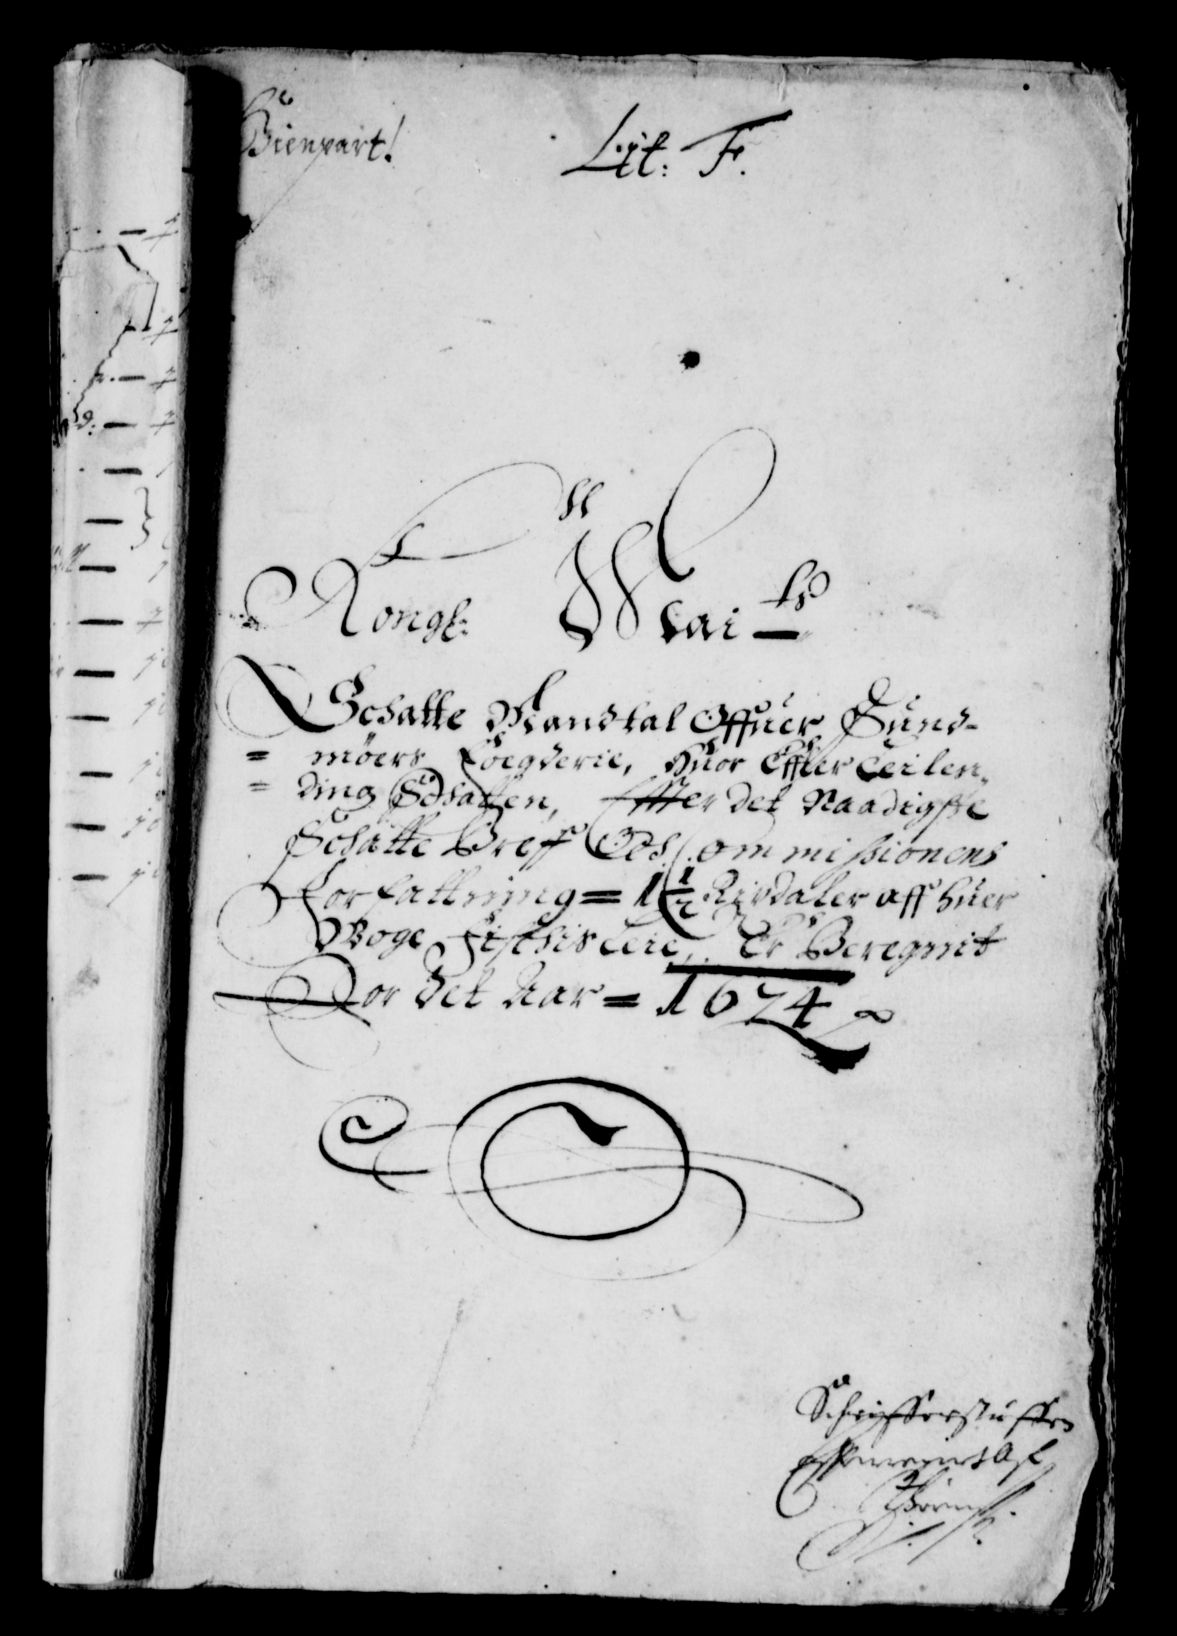 Gienpart!
Lit: F.
Kongl: Maits
Schatte Mandtal Offuer Sund-
= møers Foegderie, Huor Effter Ceilen,
= ding Schatten, Effter det Naadigste
Schatte Breff Och Commissionens
Forfattning = 1 1/2 Rixdaler aff huer
Woge Fischis Leie, Er Beregnit
For det Aar = 1624